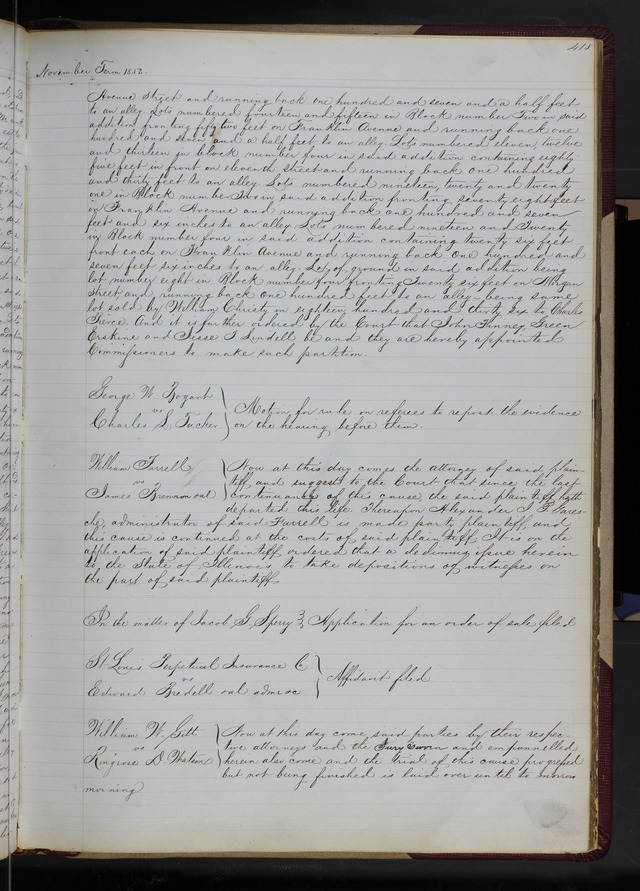 415
November Term 1852.
Avenue Street and running back one hundred and seven and a half feet
to an alley Lots numbered fourteen and fifteen in Block number Two in said
addition fronting fifty two feet on Franklin Avenue and running back one
hundred and seven and a half feet to an alley. Lots numbered eleven, twelve
and thirteen in block number four in said addition containing eighty
five feet in front on eleventh street and running back one hundred
and thirty feet to an alley Lots numbered nineteen, twenty and twenty
one in Block number Two in said addition fronting seventy eight feet
on Franklin Avenue and running back one hundred and seven
feet and six inches to an alley Lots numbered nineteen and Twenty
in Block number four in said addition containing twenty six feet
front each on Franklin Avenue and running back one hundred and
seven feet six inches to an alley Lot of ground in said addition being
lot number eight in Block number four fronting Twenty six feet on Morgan
Street and running back one hundred feet to an alley being same
lot sold by William Christy in eighteen hundred and thirty six to Charles
Pierce. And it is further ordered by the Court that John Finney, Green
Erskine and Jesse T Lindell be and they are hereby appointed
Commissioners to make such partition.
George W. Bogart
vs
Charles S. Tucker
Motion for rule on referees to report the evidence
on the hearing before them.
William Farrell
vs
James Brennan et al
Now at this day comes the attorney of said plain-
tiff and suggest to the Court that since the last
continuance of this cause the said plaintiff hath
departed this life. Thereupon Alexander J. P. Gares-
che, administrator of said Farrell is made party plaintiff and
this cause is continued at the costs of said plaintiff It is on the
application of said plaintiff ordered that a dedimus issue herein
to the State of Illinois to take depositions of witnesses on
the part of said plaintiff
In the matter of Jacob G. Sperry } Application for an order of sale filed
St Louis Perpetual Insurance Co
vs
Edward Bredell et al admr &c
Affidavit filed
William W. Gitt
vs
Ringrose D Watson
Now at this day come said parties by their respec-
tive attorneys and the Jury sworn and empannelled
herein also come and the trial of this cause progressed
but not being finished is laid over until to morrow
morning